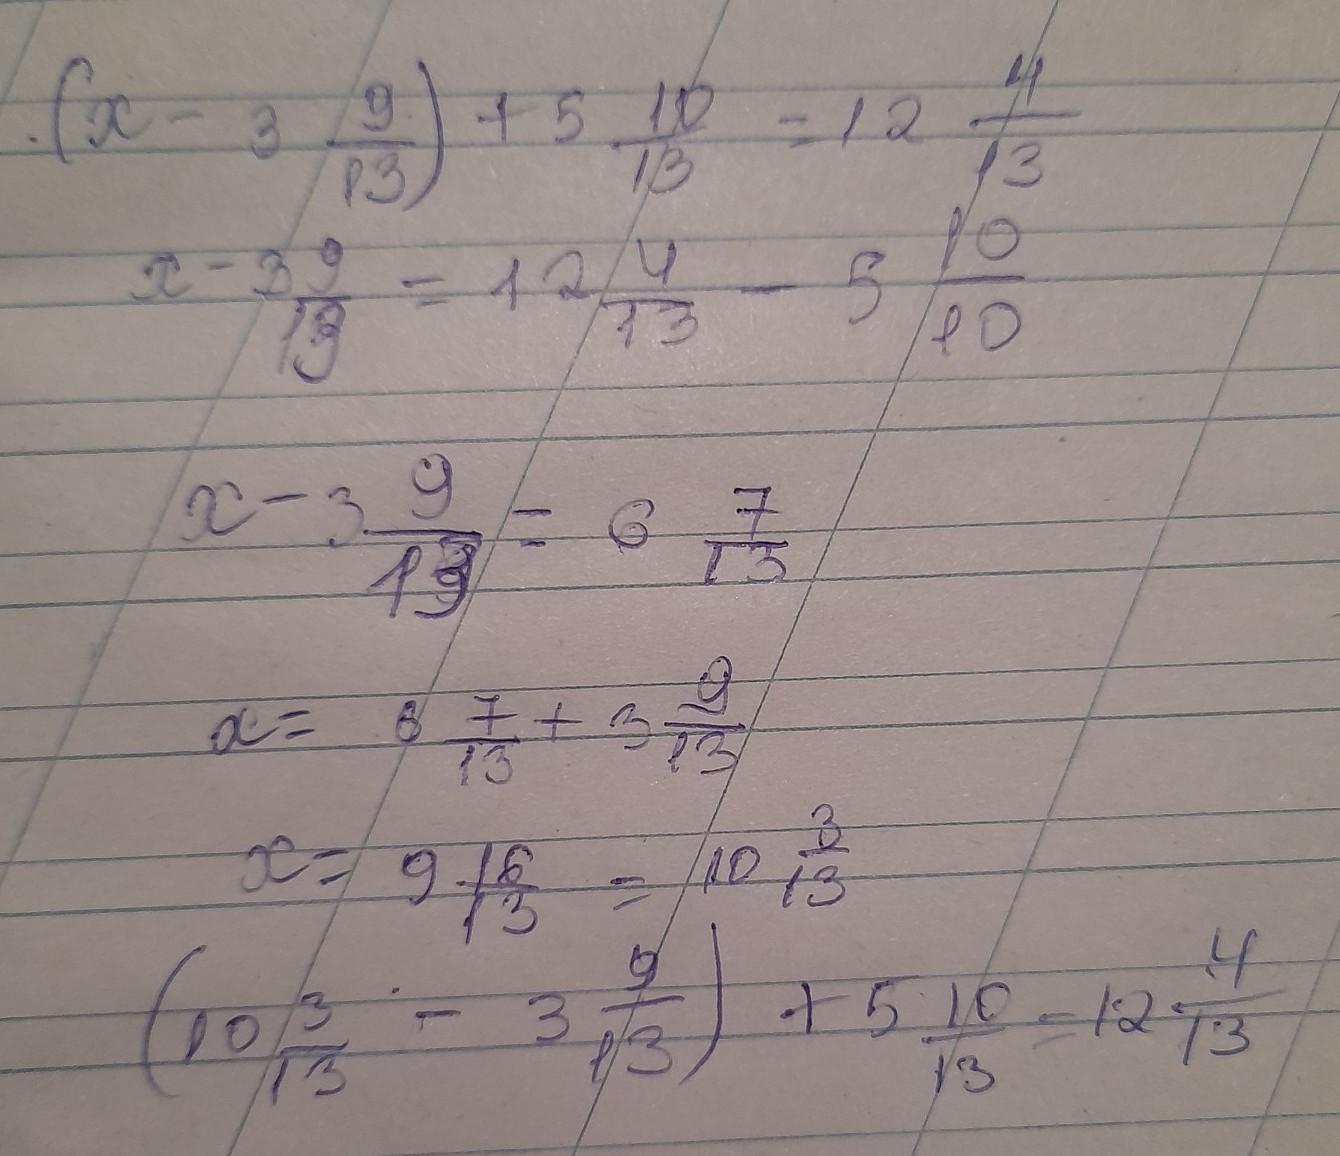 (x - 3 9/13) + 5 10/13 = 12 4/13
x - 3 9/13 = 12 4/13 - 5 10/10
x - 3 9/13 = 6 7/13
x = 6 7/13 + 3 9/13
x = 9 16/13 = 10 3/13
(10 3/13 - 3 9/13) + 5 10/13 = 12 4/13